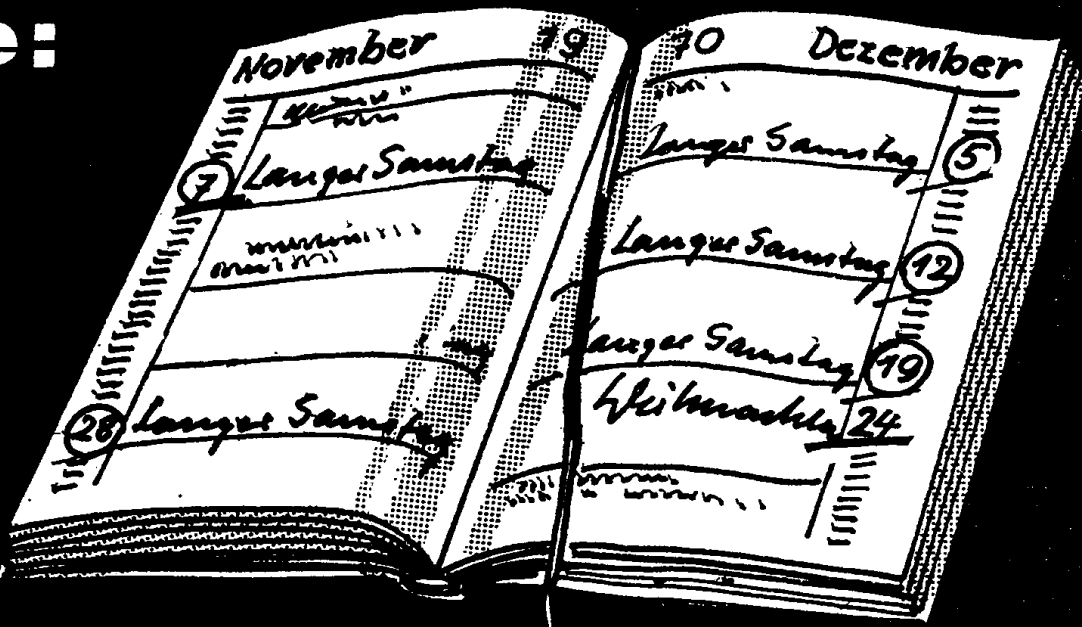 November 19
7 Langer Samstag
28 Langer Samstag
70 Dezember
Langer Samstag 5
Langer Samstag 12
Langer Samstag 19
Weihnachten 24